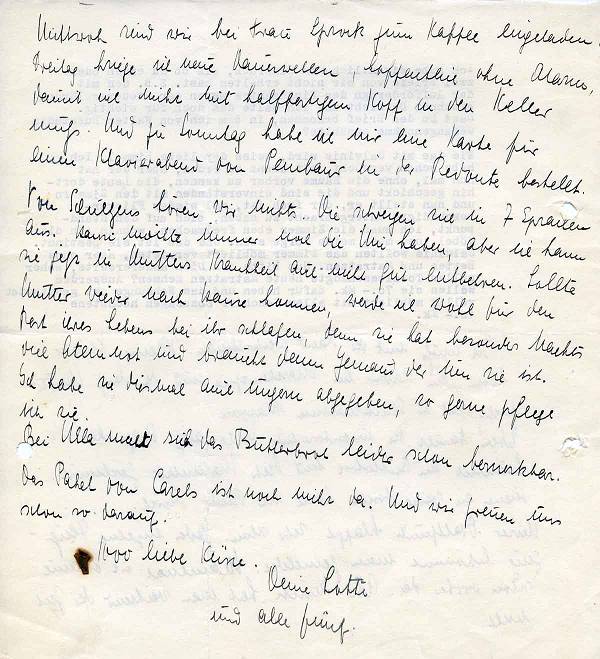 Mittwoch sind wir bei Frau Sprock zum Kaffee eingeladen.
Freitag kriege ich neue Dauerwellen, hoffentlich ohne Alarm,
damit ich nicht mit halbfertigem Kopf in den Keller
muß. Und für Sonntag habe ich mir eine Karte für
einen Klavierabend von Pembaur in der Redoute bestellt.
Von Schültgens hören wir nichts. Die schweigen sie in 7 Sprachen
aus. möchte immer noch die Uni haben, aber ich kann
sie jetzt in Mutters Krankheit auch nicht gut entbehren. Sollte
Mutter wieder nach Hause kommen, werde ich wohl für den
Rest ihres Lebens bei ihr schlafen, denn sie hat besonders Nachts
viel Atemnot und braucht dann Jemand der um sie ist.
Ich habe sie diesmal auch ungern abgegeben, so gerne pflege
ich sie.
Bei Ulla macht sich das Butterbrot leider schon bemerkbar.
Das Paket von Carels ist noch nicht da. Und wir freuen uns
schon so darauf.
1000 liebe Küsse.
Deine Lotte
und alle fünf.